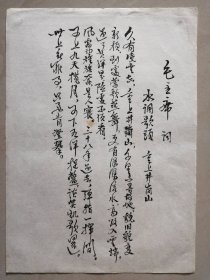 毛主席词
水调歌头 重上井岗山
久有凌云志重上井岗山千里来寻故地旧貌变
新颜到处莺歌燕舞更有潺潺流水高路入云端
过了黄洋界险处不须看
风雷动旌旗奋是人寰三十八年过去弹指一挥间
可上九天揽月可下五洋捉鳖谈笑凯歌还
世上无难事只要肯登攀